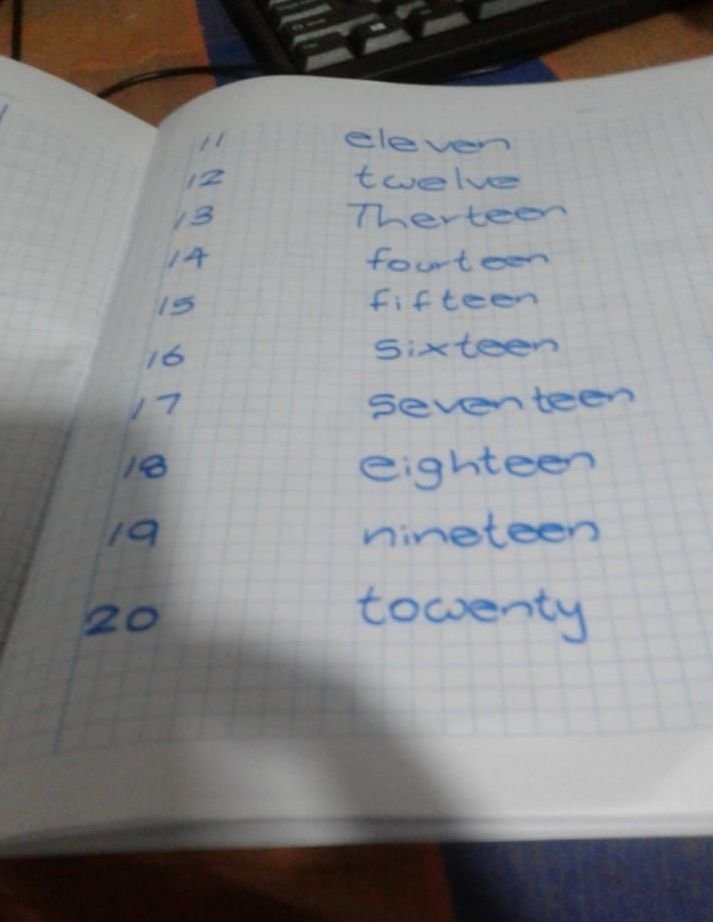 11 eleven
12 twelve
13 Therteen
14 fourteen
15 fifteen
16 sixteen
17 seventeen
18 eighteen
19 nineteen
20 towenty